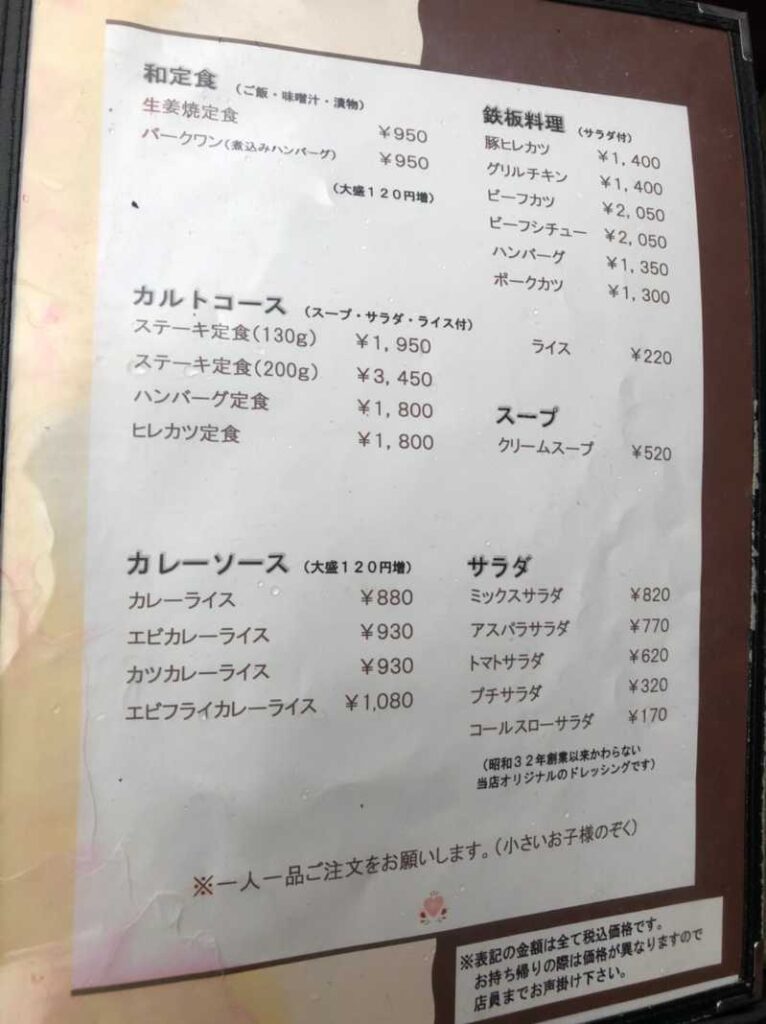 和定食 (ご飯・味噌汁・漬物)
生姜焼定食 ¥950
パークワン(煮込みハンバーグ) ¥950
(大盛120円増)
カルトコース (スープ・サラダ・ライス付)
ステーキ定食(130g) ¥1,950
ステーキ定食(200g) ¥3,450
ハンバーグ定食 ¥1,800
ヒレカツ定食 ¥1,800
カレーソース (大盛120円増)
カレーライス ¥880
エビカレーライス ¥930
カツカレーライス ¥930
エビフライカレーライス ¥1,080
鉄板料理 (サラダ付)
豚ヒレカツ ¥1,400
グリルチキン ¥1,400
ビーフカツ ¥2,050
ビーフシチュー ¥2,050
ハンバーグ ¥1,350
ポークカツ ¥1,300
ライス ¥220
スープ
クリームスープ ¥520
サラダ
ミックスサラダ ¥820
アスパラサラダ ¥770
トマトサラダ ¥620
プチサラダ ¥320
コールスローサラダ ¥170
(昭和32年創業以来かわらない
当店オリジナルのドレッシングです)
※一人一品ご注文をお願いします。(小さいお子様のぞく)
※表記の金額は全て税込価格です。
お持ち帰りの際は価格が異なりますので
店員までお声掛け下さい。